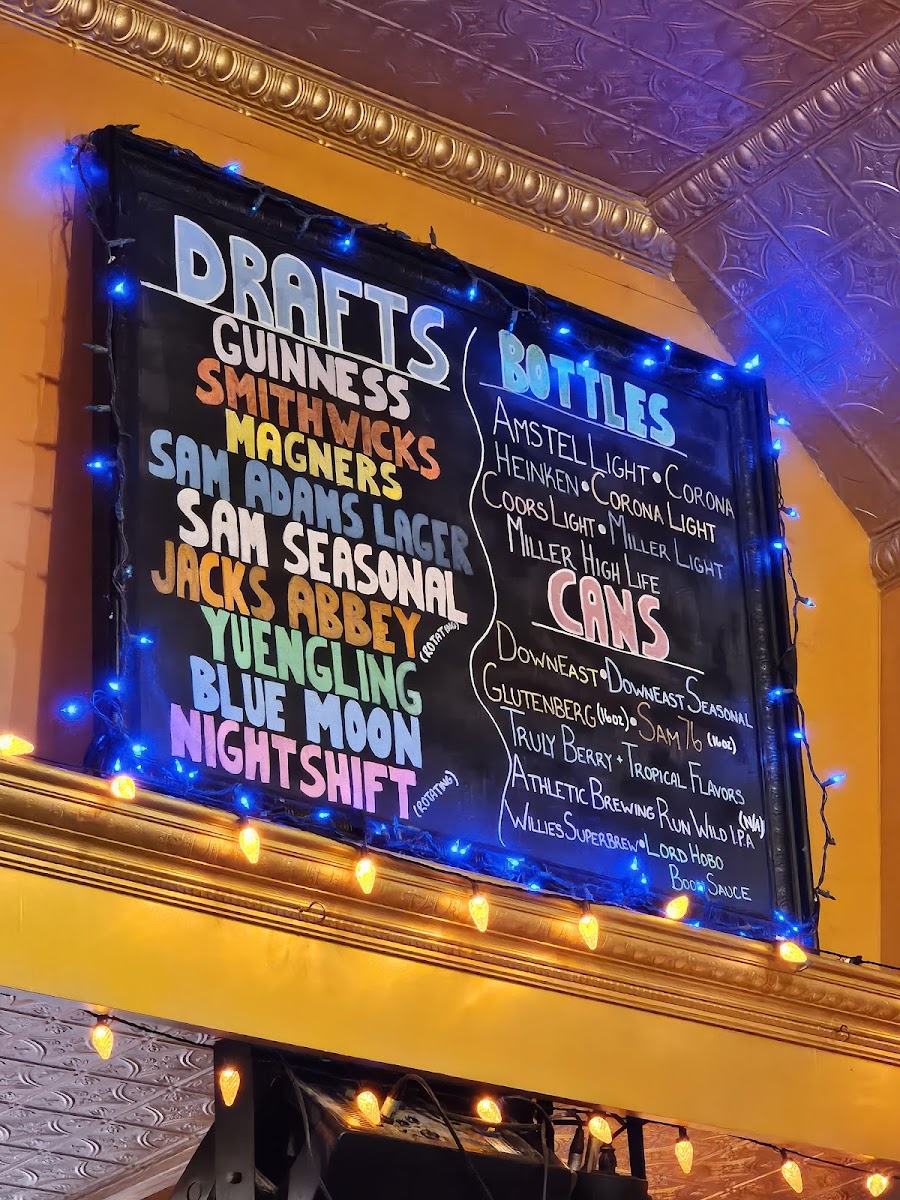 DRAFTS
GUINNESS
SMITHWICKS
MAGNERS
SAM ADAMS LAGER
SAM SEASONAL
JACKS ABBEY (ROTATING)
YUENGLING
BLUE MOON
NIGHTSHIFT (ROTATING)
BOTTLES
AMSTEL LIGHT • CORONA
HEINKEN • CORONA LIGHT
COORS LIGHT • MILLER LIGHT
MILLER HIGH LIFE
CANS
DOWNEAST • DOWNEAST SEASONAL
GLUTENBERG (16OZ) • SAM 76 (16OZ)
TRULY BERRY + TROPICAL FLAVORS
ATHLETIC BREWING RUN WILD I.P.A (N/A)
WILLIES SUPERBREW • LORD HOBO
BOOM SAUCE